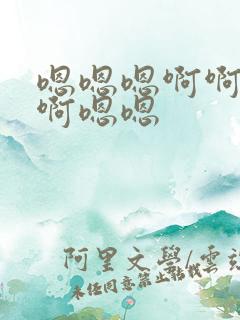 嗯嗯嗯啊啊
啊嗯嗯
阿里文學/雲
未经同意禁止转载